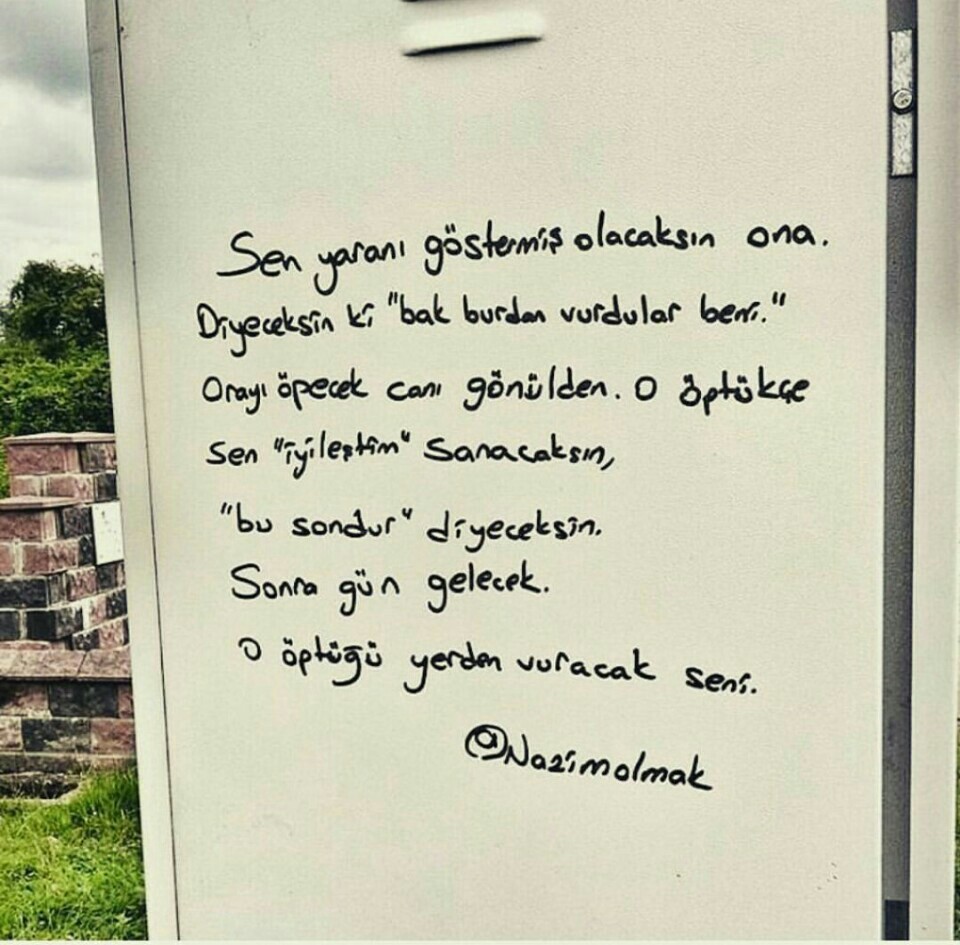 Sen yaranı göstermiş olacaksın ona.
Diyeceksin ki "bak burdan vurdular beni."
Orayı öpecek canı gönülden. O öptükçe
sen "iyileştim" sanacaksın,
"bu sondur" diyeceksin.
Sonra gün gelecek.
O öptüğü yerden vuracak seni.
@Nazimolmak